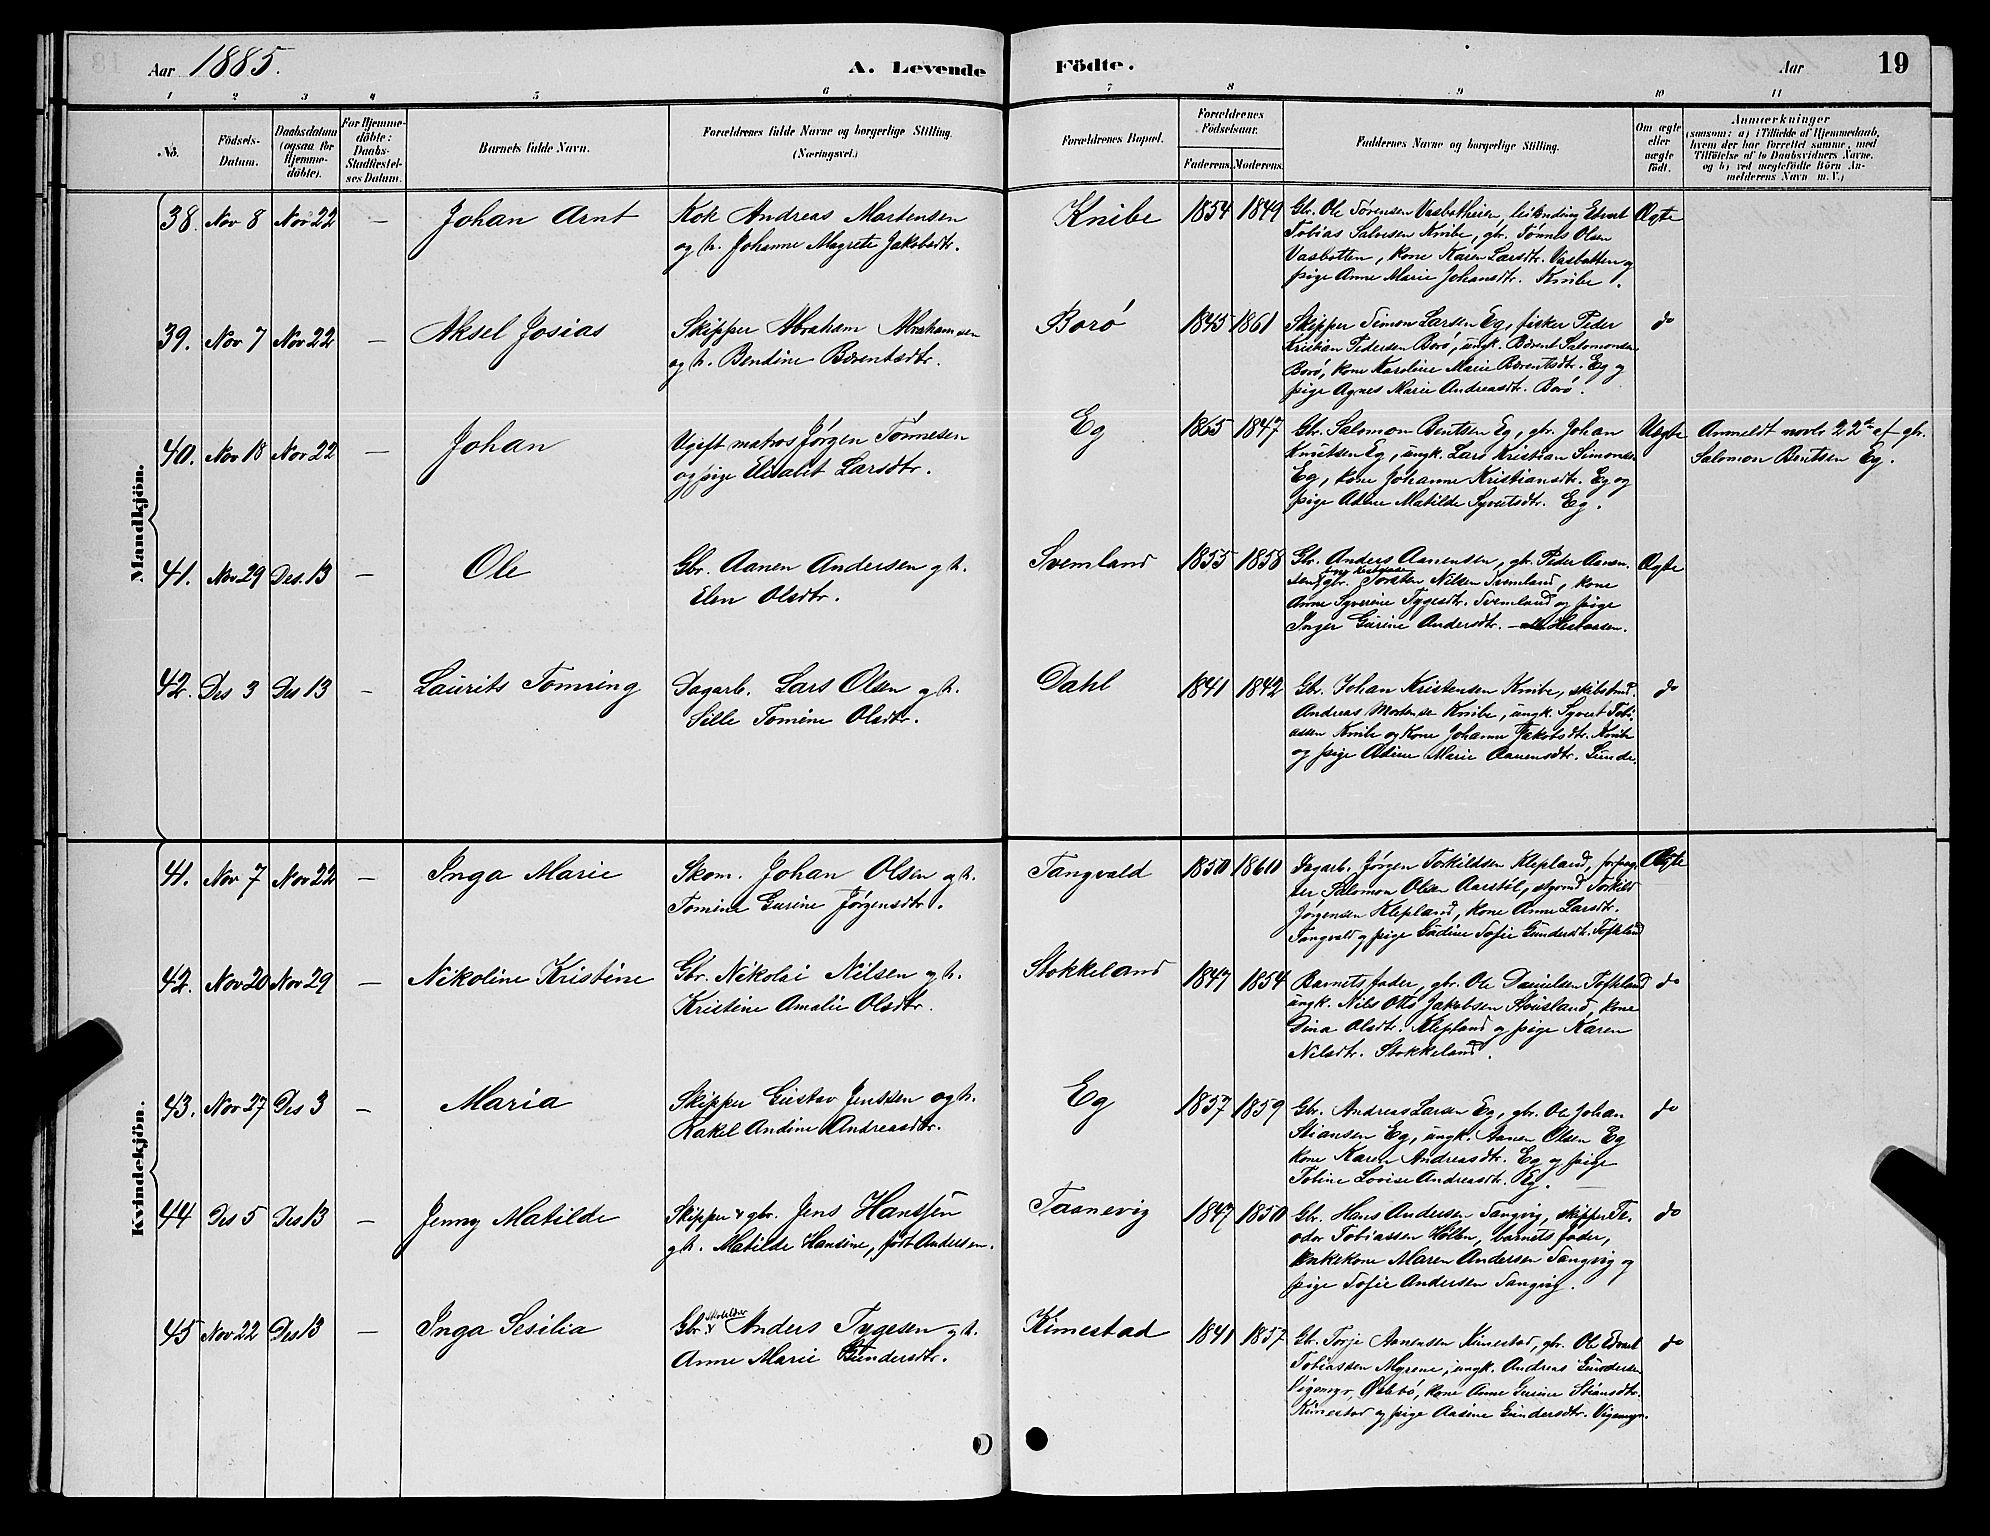 Aar 1885.
A. Levende Födte.
Aar 19
1 2 3 4 5 6 7 8 9 10 11
No.
Födsels-
Datum.
Daabsdatum
(ogsaa for
Hjemme-
döbte).
For Hjemme-
döbte:
Daabs-
Stadfæstel-
ses Datum.
Barnets fulde Navn.
Forældrenes fulde Navne og borgerlige Stilling.
(Næringsvei.)
Forældrenes Bopæl.
Forældrenes
Födselsaar.
Faderens. Moderens.
Faddernes Navne og borgerlige Stilling.
Om ægte
eller
uægte
födt.
Anmærkninger
(saasom: a) i Tilfælde af Hjemmedaab,
hvem der har forrettet samme, med
Tilföielse af to Daabsvidners Navne,
og b) ved uægtefödte Börn An-
melderens Navn m. V.)
Mandkjön.
38. Nov 8 Nov 22 — Johan Arnt
Kok Andreas Mortensen
og h. Johanne Magrete Jakobsdtr.
Knibe 1854 1849
Gbr. Ole Sørensen Vasbotheien,
Tobias Salvesen Knibe, gbr. Tønnes Olsen
Vasbotten, kone Karen Larsdtr. Vasbotten og
pige Anne Marie Johansdtr. Knibe.
Ægte
39. Nov 7 Nov 22 — Aksel Josias
Skipper Abraham Abrahamsen
og h. Bendine Berentsdtr.
Borø 1845 1861
Skipper Simon Larsen Eg, fisker Peder
Kristian Pedersen Borø, ungk. Berent Salomonsen
Borø, kone Karoline Marie Berentsdtr. Eg og
pige Agnes Marie Andreasdtr. Borø.
do
40. Nov 18 Nov 22 — Johan
Ugift matros Jørgen Tønnesen
og pige Elisabet Larsdtr.
Eg 1865 1847
Gbr. Salomon Bentsen Eg, gbr. Johan
Knutsen Eg, ungk. Lars Kristian Simonsen
Eg, kone Johanne Kristiansdtr. Eg og
pige Adine Matilde Syvertsdtr. Eg.
Uægte
Anmeldt novbr 22de af gbr.
Salomon Bentsen Eg.
41. Nov 29 Des. 13 — Ole
Gbr. Aanen Andersen og h.
Elen Olsdtr.
Svemland 1855 1858
Gbr. Anders Aanensen, gbr. Peder Aanen-
sen, gbr. Torsten Nilsen Svemland, kone
Anne Syverine Tygesdtr. Svemland og pige
Inger Gurine Andersdtr.
Ægte
42. Des 3 Des 13 — Laurits Tomring
Dagarb. Lars Olsen og h.
Sille Tomine Olsdtr.
Dahl 1841 1842
Gbr. Johan Kristensen Knibe,
Andreas Mortensen Knibe, ungk. Syvert Tobi-
assen Knibe og kone Johanne Jakobsdtr. Knibe
og pige Adine Marie Aanensdtr. Lunde.
do
Kvindekjön.
41. Nov 7 Nov 22 — Inga Marie
Skom. Johan Olsen og h.
Tomine Gurine Jørgensdtr.
Tangvald 1850 1860
Dagarb. Jørgen Torkildsen Klepland, forpag-
ter Salomon Olsen Aarstøl, styrmd Torkild
Jørgensen Klepland, kone Anne Larsdtr.
Tangvald og pige Gudine Sofie Gundersdtr. Toftland
Ægte
42. Nov 20 Nov 29 — Nikoline Kristine
Gbr. Nikolai Nilsen og h.
Kristine Amalie Olsdtr.
Stokkeland 1847 1854
Barnets fader, gbr. Ole Danielsen Toftland
ungk. Nils Otto Jakobsen Stousland, kone
Dina Olsdtr. Klepland og pige Karen
Nilsdtr. Stokkeland.
do
43. Nov 27 Des 3 — Maria
Skipper Gustav Jenssen og h.
Rakel Andine Andreasdtr.
Eg 1857 1859
Gbr. Andreas Larsen Eg, gbr. Ole Johan
Stiansen Eg, ungk. Aanen Olsen Eg
kone Karen Andreasdtr. Eg og pige
Tobine Lovise Andreasdtr. Eg.
do
44 Des 5 Des 13 — Jenny Matilde
Skipper & gbr. Jens Hanssen
og h. Matilde Hansine, født Andersen.
Taanevig 1847 1850
Gbr. Hans Andersen Tangvig, skipper Te-
odor Tobiassen Holen, barnets fader,
enkekone Maren Andersen Tangvig og
pige Sofie Andersen Tangvig.
do
45 Nov 22 Des 13 — Inga Sesilia
Gbr. & Anders Tygesen og h.
Anne Marie Gundersdtr.
Kimestad 1841 1857
Gbr. Torje Aanensen Kimestad, gbr. Ole Edvart
Tobiassen Myrene, ungk. Andreas Gundersen
Vigemyr, Øslebø, kone Anne Gurine Stiansdtr.
Kimestad og pige Aasine Gundersdtr. Vigemyr.
do